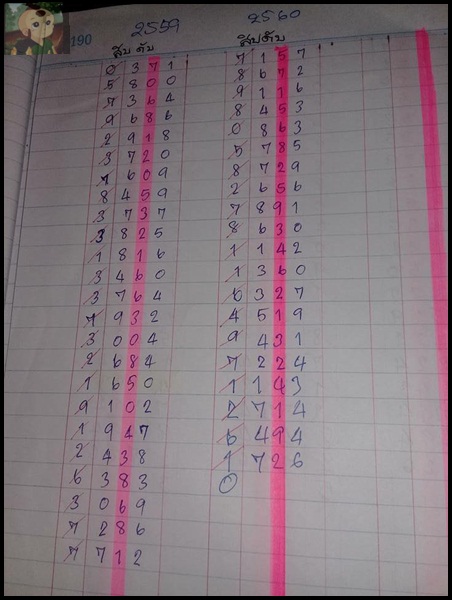 190
2559 2560
สิบ ตับ สิบ ตับ
0 3 7 1 7 1 5 7
5 8 0 0 8 6 7 2
7 3 6 4 9 1 1 6
9 6 8 6 8 4 5 3
2 9 1 8 0 8 6 3
3 7 2 0 5 7 8 5
1 6 0 9 8 7 2 9
8 4 5 9 2 6 5 6
3 7 3 7 7 8 9 1
3 8 2 5 8 6 3 0
1 8 1 6 1 1 4 2
3 4 6 0 1 3 6 0
3 7 6 4 6 3 2 7
7 9 3 2 4 5 1 9
3 0 0 4 9 4 3 1
2 6 8 4 7 2 2 4
1 6 5 0 1 1 4 3
9 1 0 2 2 7 1 4
1 9 4 7 6 4 9 4
2 4 3 8 1 7 2 6
6 3 8 3 0
3 0 6 9
7 2 8 6
7 7 1 2